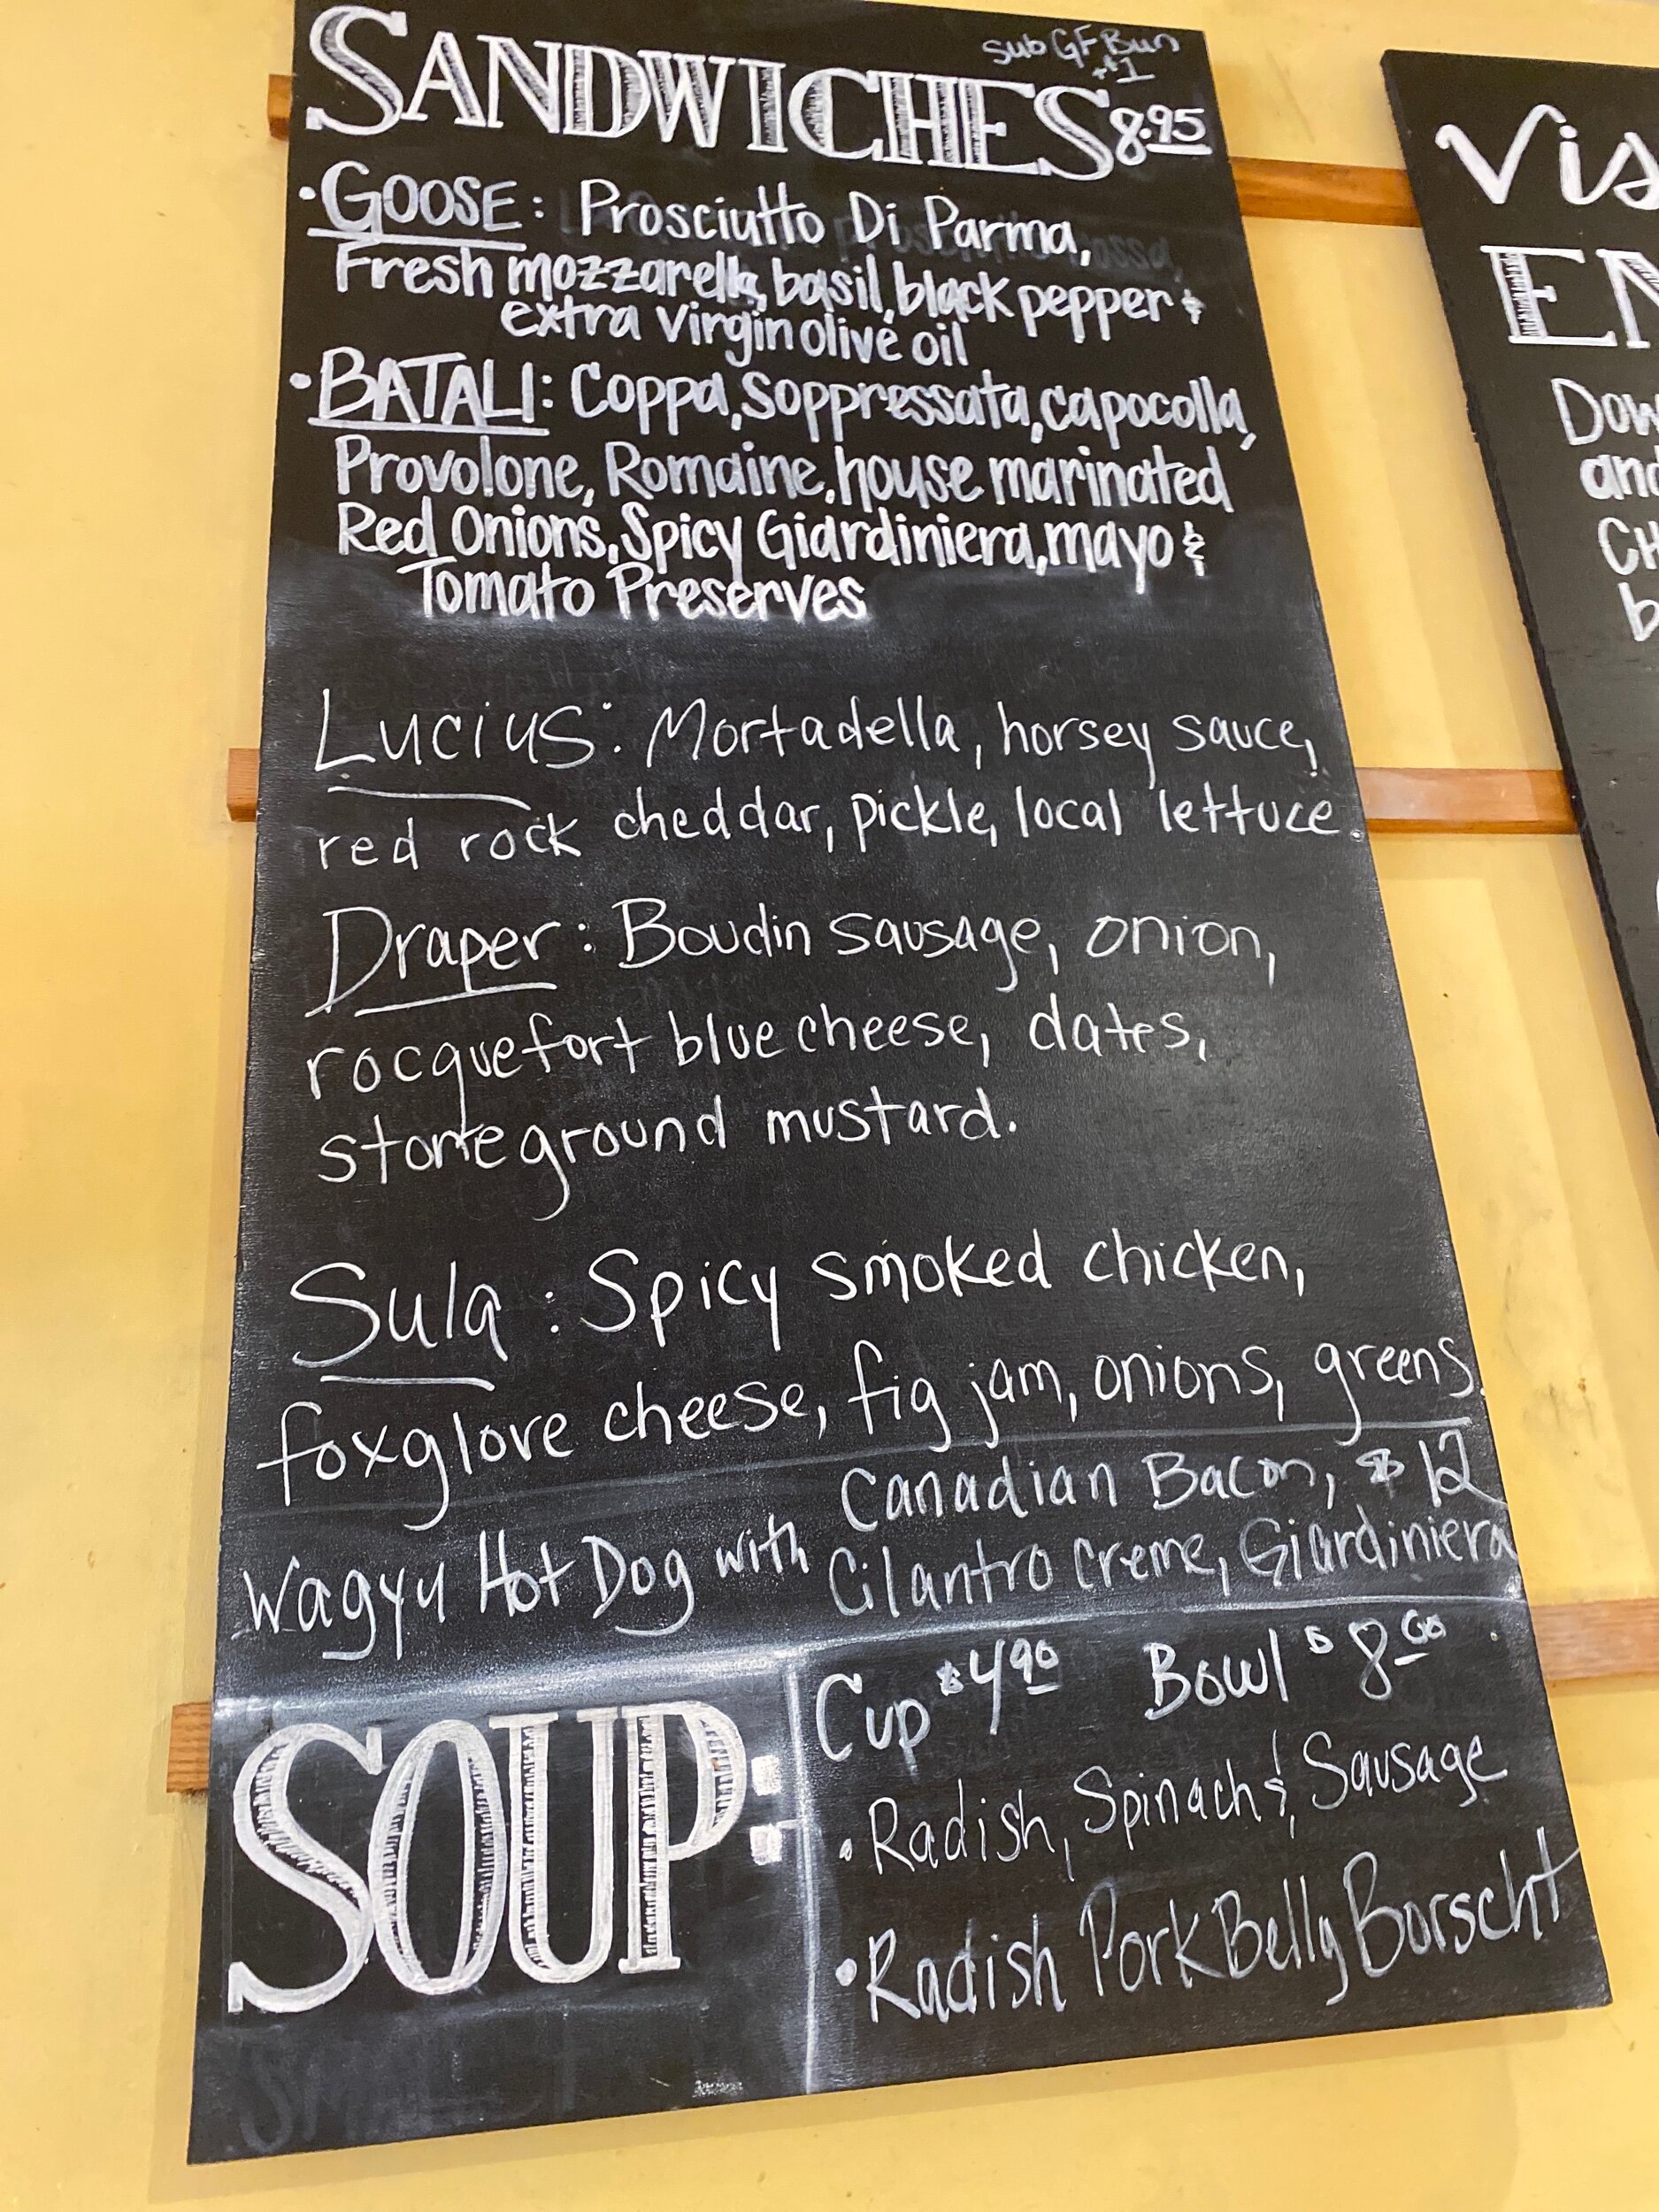 Sub GF Bun
+$1
SANDWICHES 8.95
• GOOSE: Prosciutto Di Parma,
Fresh mozzarella, basil, black pepper &
extra virgin olive oil
• BATALI: Coppa, Soppressata, capocolla,
Provolone, Romaine, house marinated
Red Onions, Spicy Giardiniera, mayo &
Tomato Preserves
Lucius: Mortadella, horsey sauce,
red rock cheddar, pickle, local lettuce.
Draper: Boudin sausage, onion,
rocquefort blue cheese, dates,
stoneground mustard.
Sula: Spicy smoked chicken,
foxglove cheese, fig jam, onions, greens.
Canadian Bacon, $12
Wagyu Hot Dog with Cilantro Creme, Giardiniera
SOUP:
Cup $4.90 Bowl $8.00
• Radish, Spinach & Sausage
• Radish Pork Belly Borscht
Vis
EN
Dow
and
CH
b